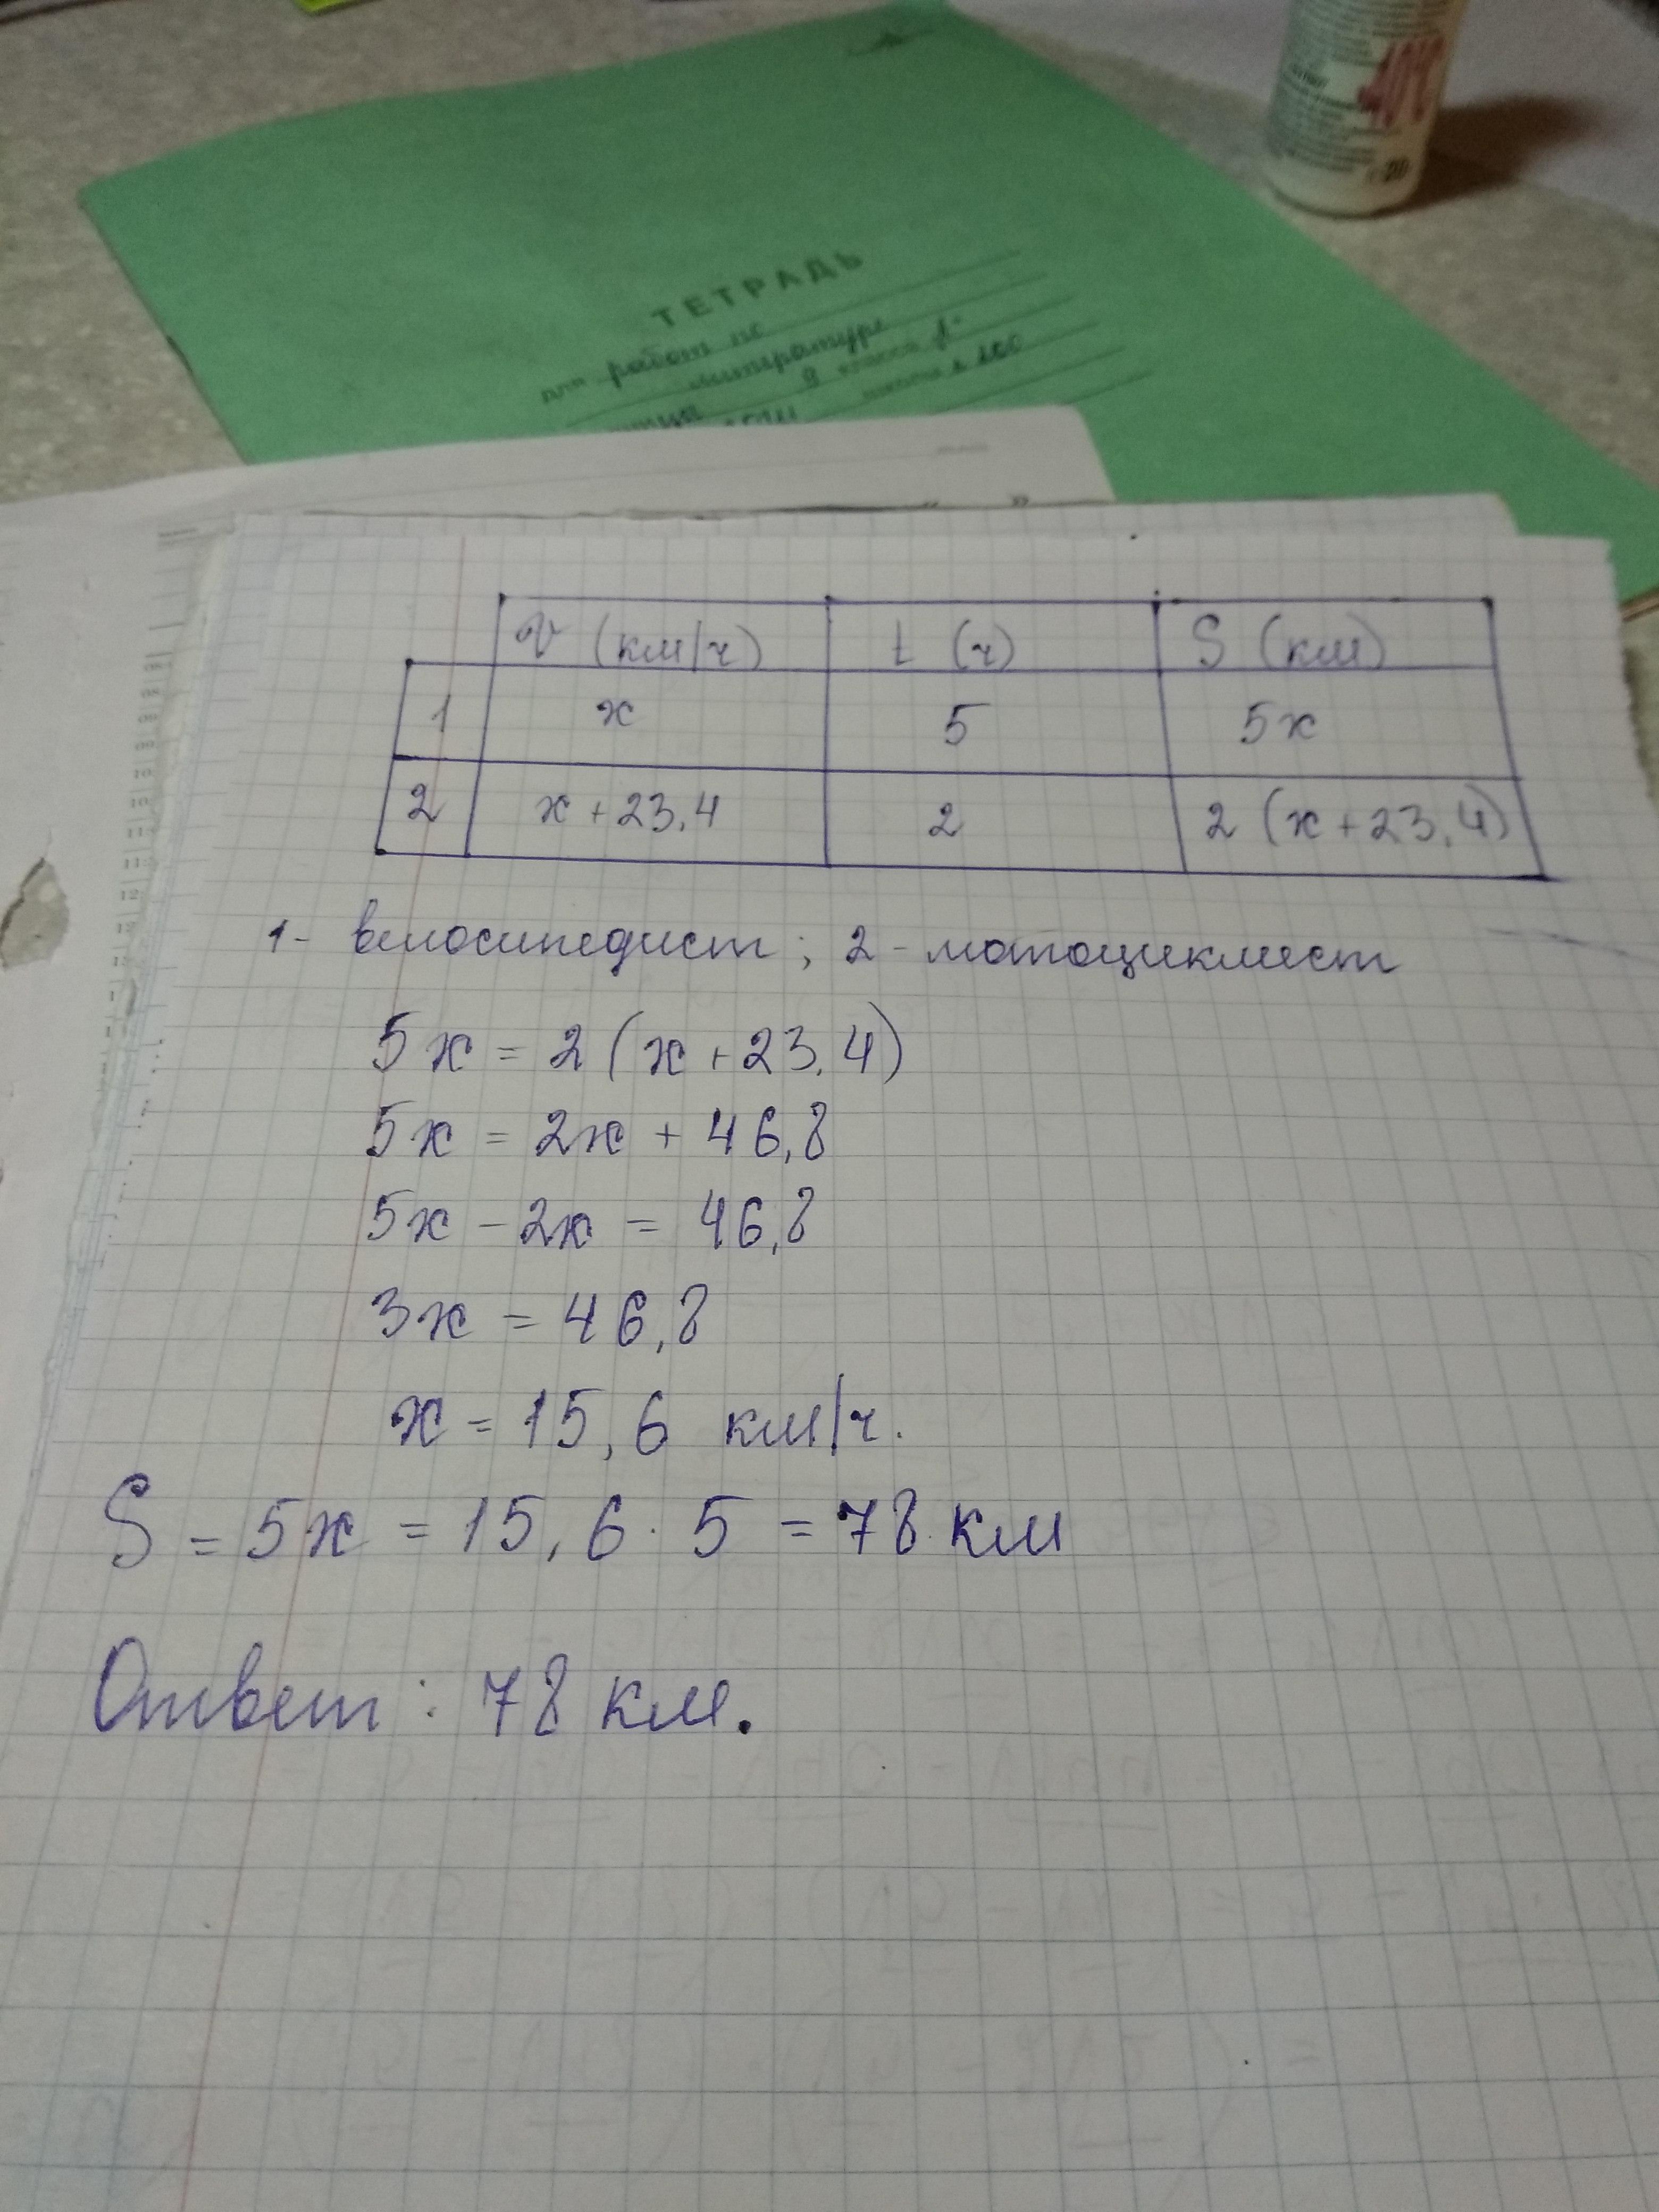 ТЕТРАДЬ
для работ по
литературе
8 класса
v (км/ч) t (ч) S (км)
1 x 5 5x
2 x + 23,4 2 2 (x + 23,4)
1 - велосипедист ; 2 - мотоциклист
5x = 2 (x + 23,4)
5x = 2x + 46,8
5x - 2x = 46,8
3x = 46,8
x = 15,6 км/ч.
S = 5x = 15,6 · 5 = 78 км
Ответ : 78 км.